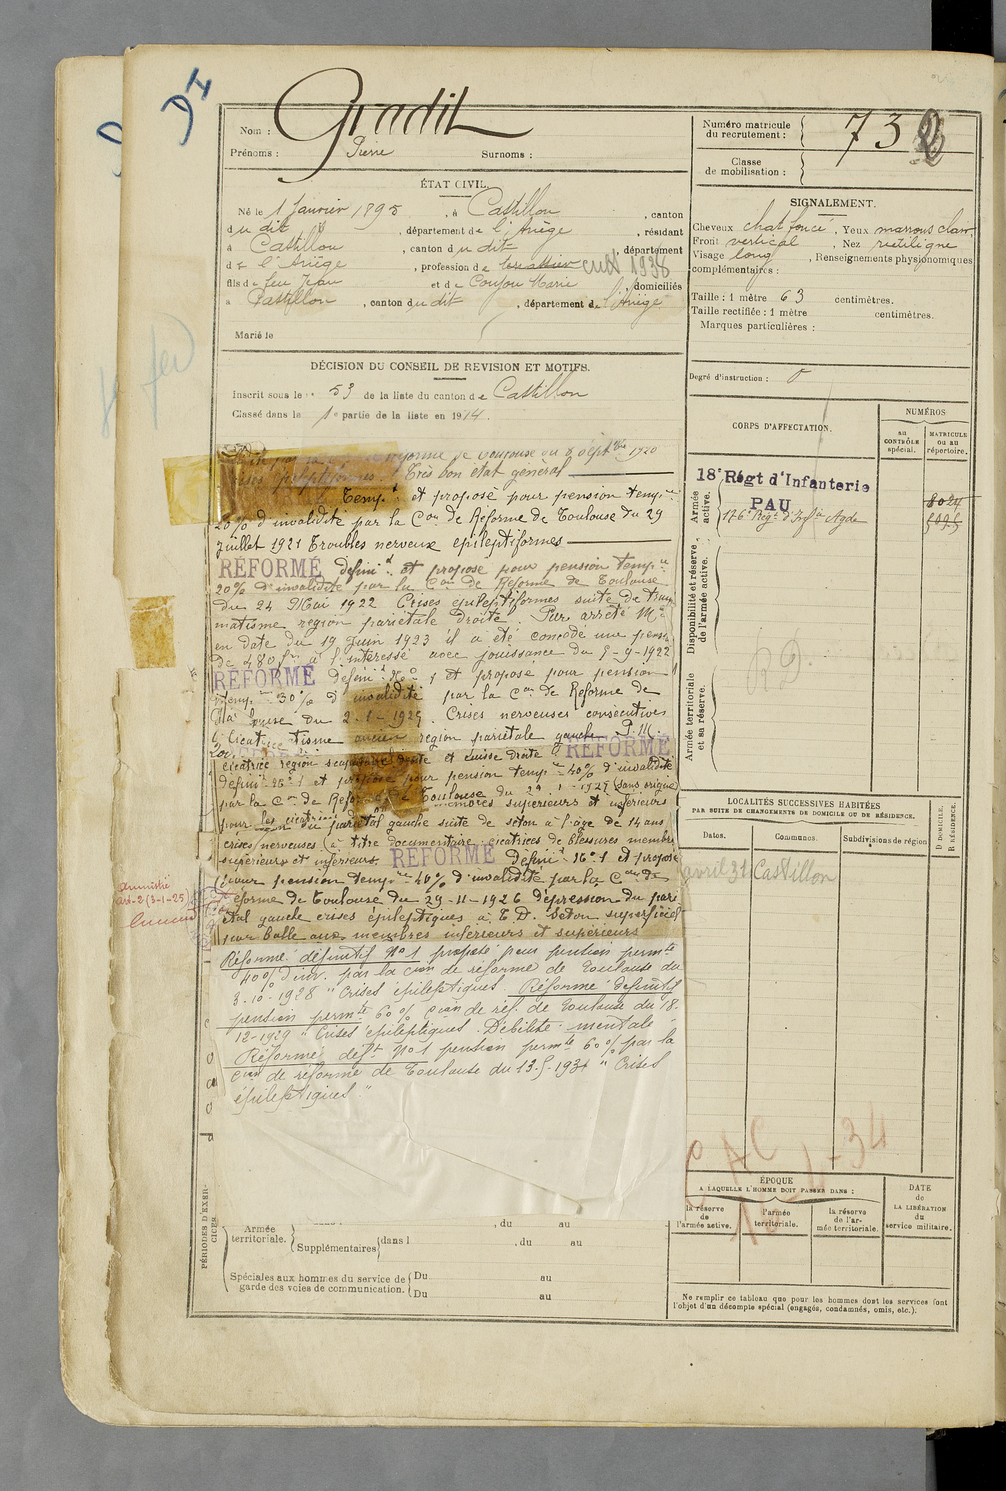 DI
Nom : Gradit
Prénoms : Pierre Surnoms :
Numéro matricule du recrutement : 732
Classe de mobilisation :
ÉTAT CIVIL.
Né le 1 Janvier 1895, à Castillon, canton
du dit, département de l'Ariège, résidant
à Castillon, canton du dit, département
de l'Ariège, profession de cult 1938
fils de feu Jean et de Coujou Marie, domiciliés
à Castillon, canton du dit, département de l'Ariège
Marié le
SIGNALEMENT.
Cheveux chat foncé, Yeux marrons clair
Front vertical, Nez rectiligne
Visage long, Renseignements physionomiques
complémentaires :
Taille : 1 mètre 63 centimètres.
Taille rectifiée : 1 mètre centimètres.
Marques particulières :
Degré d'instruction : 0
DÉCISION DU CONSEIL DE REVISION ET MOTIFS.
Inscrit sous le n° 53 de la liste du canton de Castillon
Classé dans la 1e partie de la liste en 1914.
réforme de Toulouse du 8 septbre 1920
crises épileptiformes. Très bon état général
Tempre et proposé pour pension tempre
20% d'invalidité par la Con de Réforme de Toulouse du 29
Juillet 1921 Troubles nerveux épileptiformes
RÉFORMÉ définit et proposé pour pension tempre
20% d'invalidité par la Con de Réforme de Toulouse
du 24 Mai 1922 Crises épileptiformes suite de trau
matisme région pariétale droite. Par arrêté Mel
en date du 19 Juin 1923 il a été concédé une pension
de 480 frs à l'intéressé avec jouissance du 5-9-1922
RÉFORMÉ définit No 1 et proposé pour pension
temp 30% d'invalidité par la Con de Réforme de
du 2-1-1925. Crises nerveuses consécutives
ancien région pariétale gauche P.M.
RÉFORMÉ
cicatrice région scapulaire droite et cuisse droite
définit No 1 et proposé pour pension tempre 40% d'invalidité
par la Con de Réforme de Toulouse du 29-1-1925 (sans origine
membres supérieurs et inférieurs
pour les cicatrices
du pariétal gauche suite de séton à l'âge de 14 ans
crises nerveuses (à titre documentaire cicatrices de blessures membres
supérieurs et inférieurs. RÉFORMÉ définit No 1 et proposé
pour pension tempre 40% d'invalidité par la Con de
Réforme de Toulouse du 29-11-1926 dépression du pari
étal gauche crises épileptiques à T.D. Séton superficiel
par balle aux membres inférieurs et supérieurs
Réformé définitif No 1 proposé pour pension permte
40% d'inv. par la Con de réforme de Toulouse du
3-10-1928 "Crises épileptiques. Réformé définitif
pension permte 60% Con de réf. de Toulouse du 18-
12-1929 "Crises épileptiques. Débilité mentale"
Réformé déft No 1 pension permte 60% par la
Con de réforme de Toulouse du 13-5-1931 "Crises
épileptiques"
Amnistié
art-2 (3-1-25)
CORPS D'AFFECTATION.
NUMÉROS
au CONTRÔLE spécial.
MATRICULE ou au répertoire.
Armée active.
18e Régt d'Infanterie
PAU
8024
176e Régt d'Infie Agde
Disponibilité et réserve de l'armée active.
RD
Armée territoriale et sa réserve.
LOCALITÉS SUCCESSIVES HABITÉES
PAR SUITE DE CHANGEMENTS DE DOMICILE OU DE RÉSIDENCE.
Dates. Communes. Subdivisions de région D DOMICILE. R RÉSIDENCE.
avril 31 Castillon
ÉPOQUE
A LAQUELLE L'HOMME DOIT PASSER DANS :
la réserve de l'armée active.
l'armée territoriale.
la réserve de l'armée territoriale.
DATE de LA LIBÉRATION du service militaire.
PÉRIODES D'EXERCICES
Armée territoriale. , du au
Supplémentaires dans l , du au
Spéciales aux hommes du service de garde des voies de communication. Du au
Du au
Ne remplir ce tableau que pour les hommes dont les services font
l'objet d'un décompte spécial (engagés, condamnés, omis, etc.).